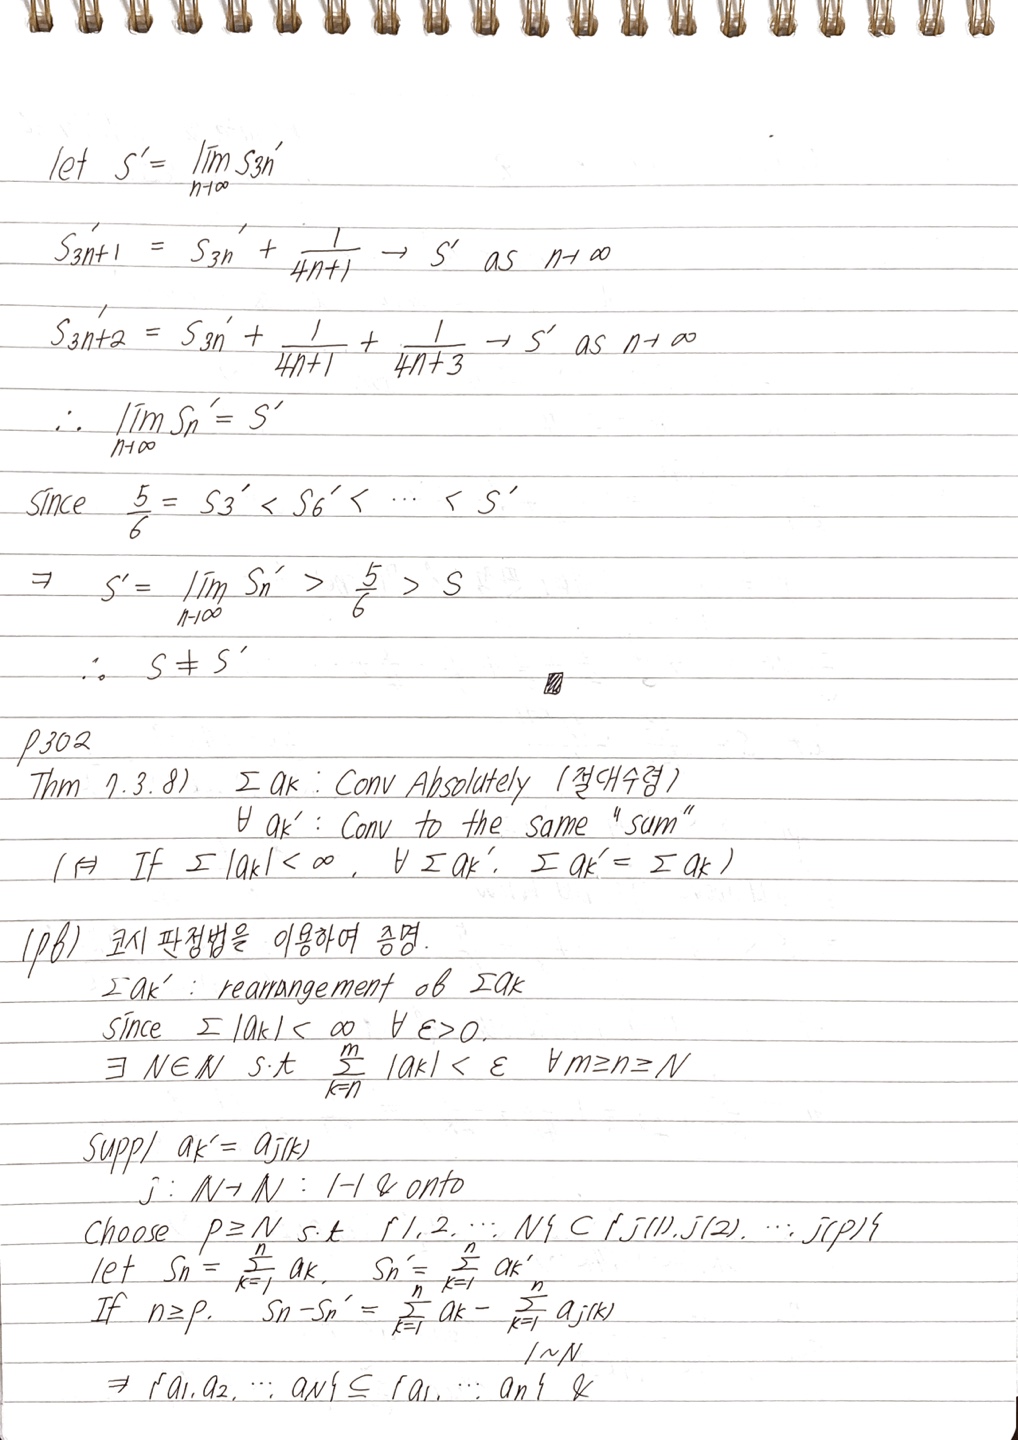 let S' = lim S3n'
n→∞
S3n+1' = S3n' + 1/(4n+1) → S' as n→∞
S3n+2' = S3n' + 1/(4n+1) + 1/(4n+3) → S' as n→∞
∴ lim Sn' = S'
n→∞
since 5/6 = S3' < S6' < ⋯ < S'
⇒ S' = lim Sn' > 5/6 > S
n→∞
∴ S ≠ S'
P302
Thm 7.3.8) Σ ak : Conv Absolutely (절대수렴)
∀ ak' : Conv to the same "sum"
(⇔ If Σ|ak| < ∞, ∀ Σak', Σak' = Σak)
(pf) 코시 판정법을 이용하여 증명.
Σak' : rearrangement of Σak
since Σ|ak| < ∞ ∀ ε>0.
∃ N∈ℕ s.t Σ_{k=n}^{m} |ak| < ε ∀m≥n≥N
Supp/ ak' = aj(k)
j : ℕ→ℕ : 1-1 & onto
Choose p≥N s.t {1, 2, ⋯ N} ⊂ {j(1), j(2), ⋯, j(p)}
let Sn = Σ_{k=1}^{n} ak, Sn' = Σ_{k=1}^{n} ak'
If n≥p. Sn-Sn' = Σ_{k=1}^{n} ak - Σ_{k=1}^{n} aj(k)
1~N
⇒ {a1, a2, ⋯ aN} ⊆ {a1, ⋯ an} &